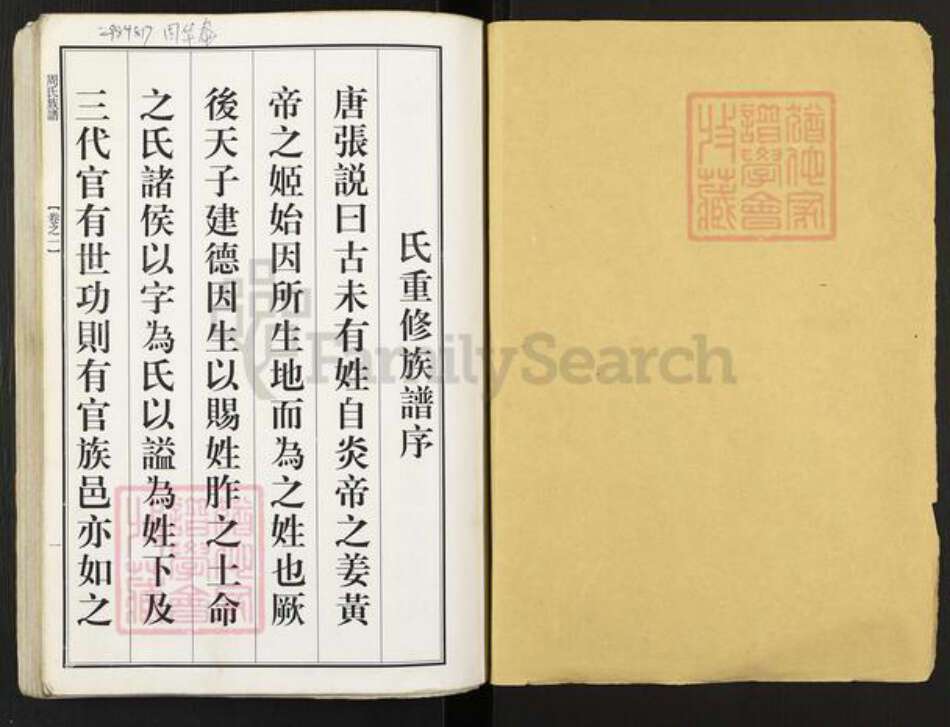 猶他家
譜學會
收藏
氏重修族譜序
唐張説曰古未有姓自炎帝之姜黃
帝之姬始因所生地而為之姓也厥
後天子建德因生以賜姓胙之土命
之氏諸侯以字為氏以謚為姓下及
三代官有世功則有官族邑亦如之
周氏族譜
【卷之一】
一
猶他家
譜學會
收藏
FamilySearch